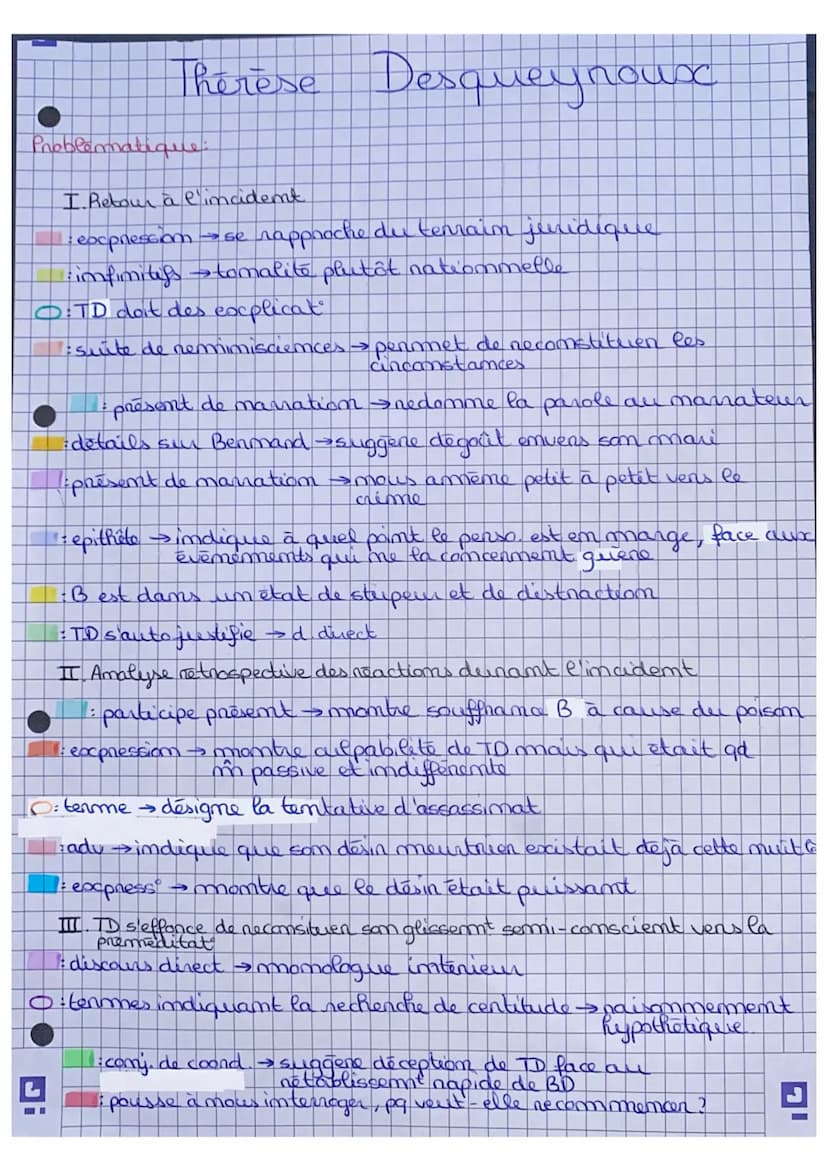 Thérèse Desqueyroux
Problématique:
I. Retour à l'incident
: expression → se rapproche du terrain juridique
: infinitifs → tonalité plutôt rationnelle
: TD doit des explicat°
: suite de réminisciences → permet de reconstituer les
circonstances
: présent de narration → redonne la parole au narrateur
: détails sur Bernard → suggère dégoût envers son mari
: présent de narration → nous amène petit à petit vers le
crime
: epithète → indique à quel point le perso. est en marge, face aux
évènements qui ne la concernent guère
: B est dans un état de stupeur et de distraction
: TD s'auto justifie → d. direct
II. Analyse rétrospective des réactions durant l'incident
: participe présent → montre souffrance B à cause du poison
: expression → montre culpabilité de TD mais qui était qd
m̂ passive et indifférente
: terme → désigne la tentative d'assassinat
: adv → indique que son désir meurtrier existait déjà cette nuit
: express° → montre que le désir était puissant
III. TD s'efforce de reconsituer son glissemnt semi-conscient vers la
préméditat°
: discours direct → monologue intérieur
: termes indiquant la recherche de certitude → raisonnement
hypothétique
: conj. de coord. → suggère déception de TD face au
rétablissemt rapide de BD
: pousse à nous interroger, pq veut-elle recommencer ?